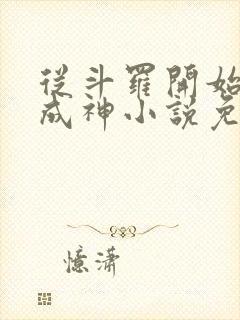 從斗羅開始
成神小說免
憶瀟